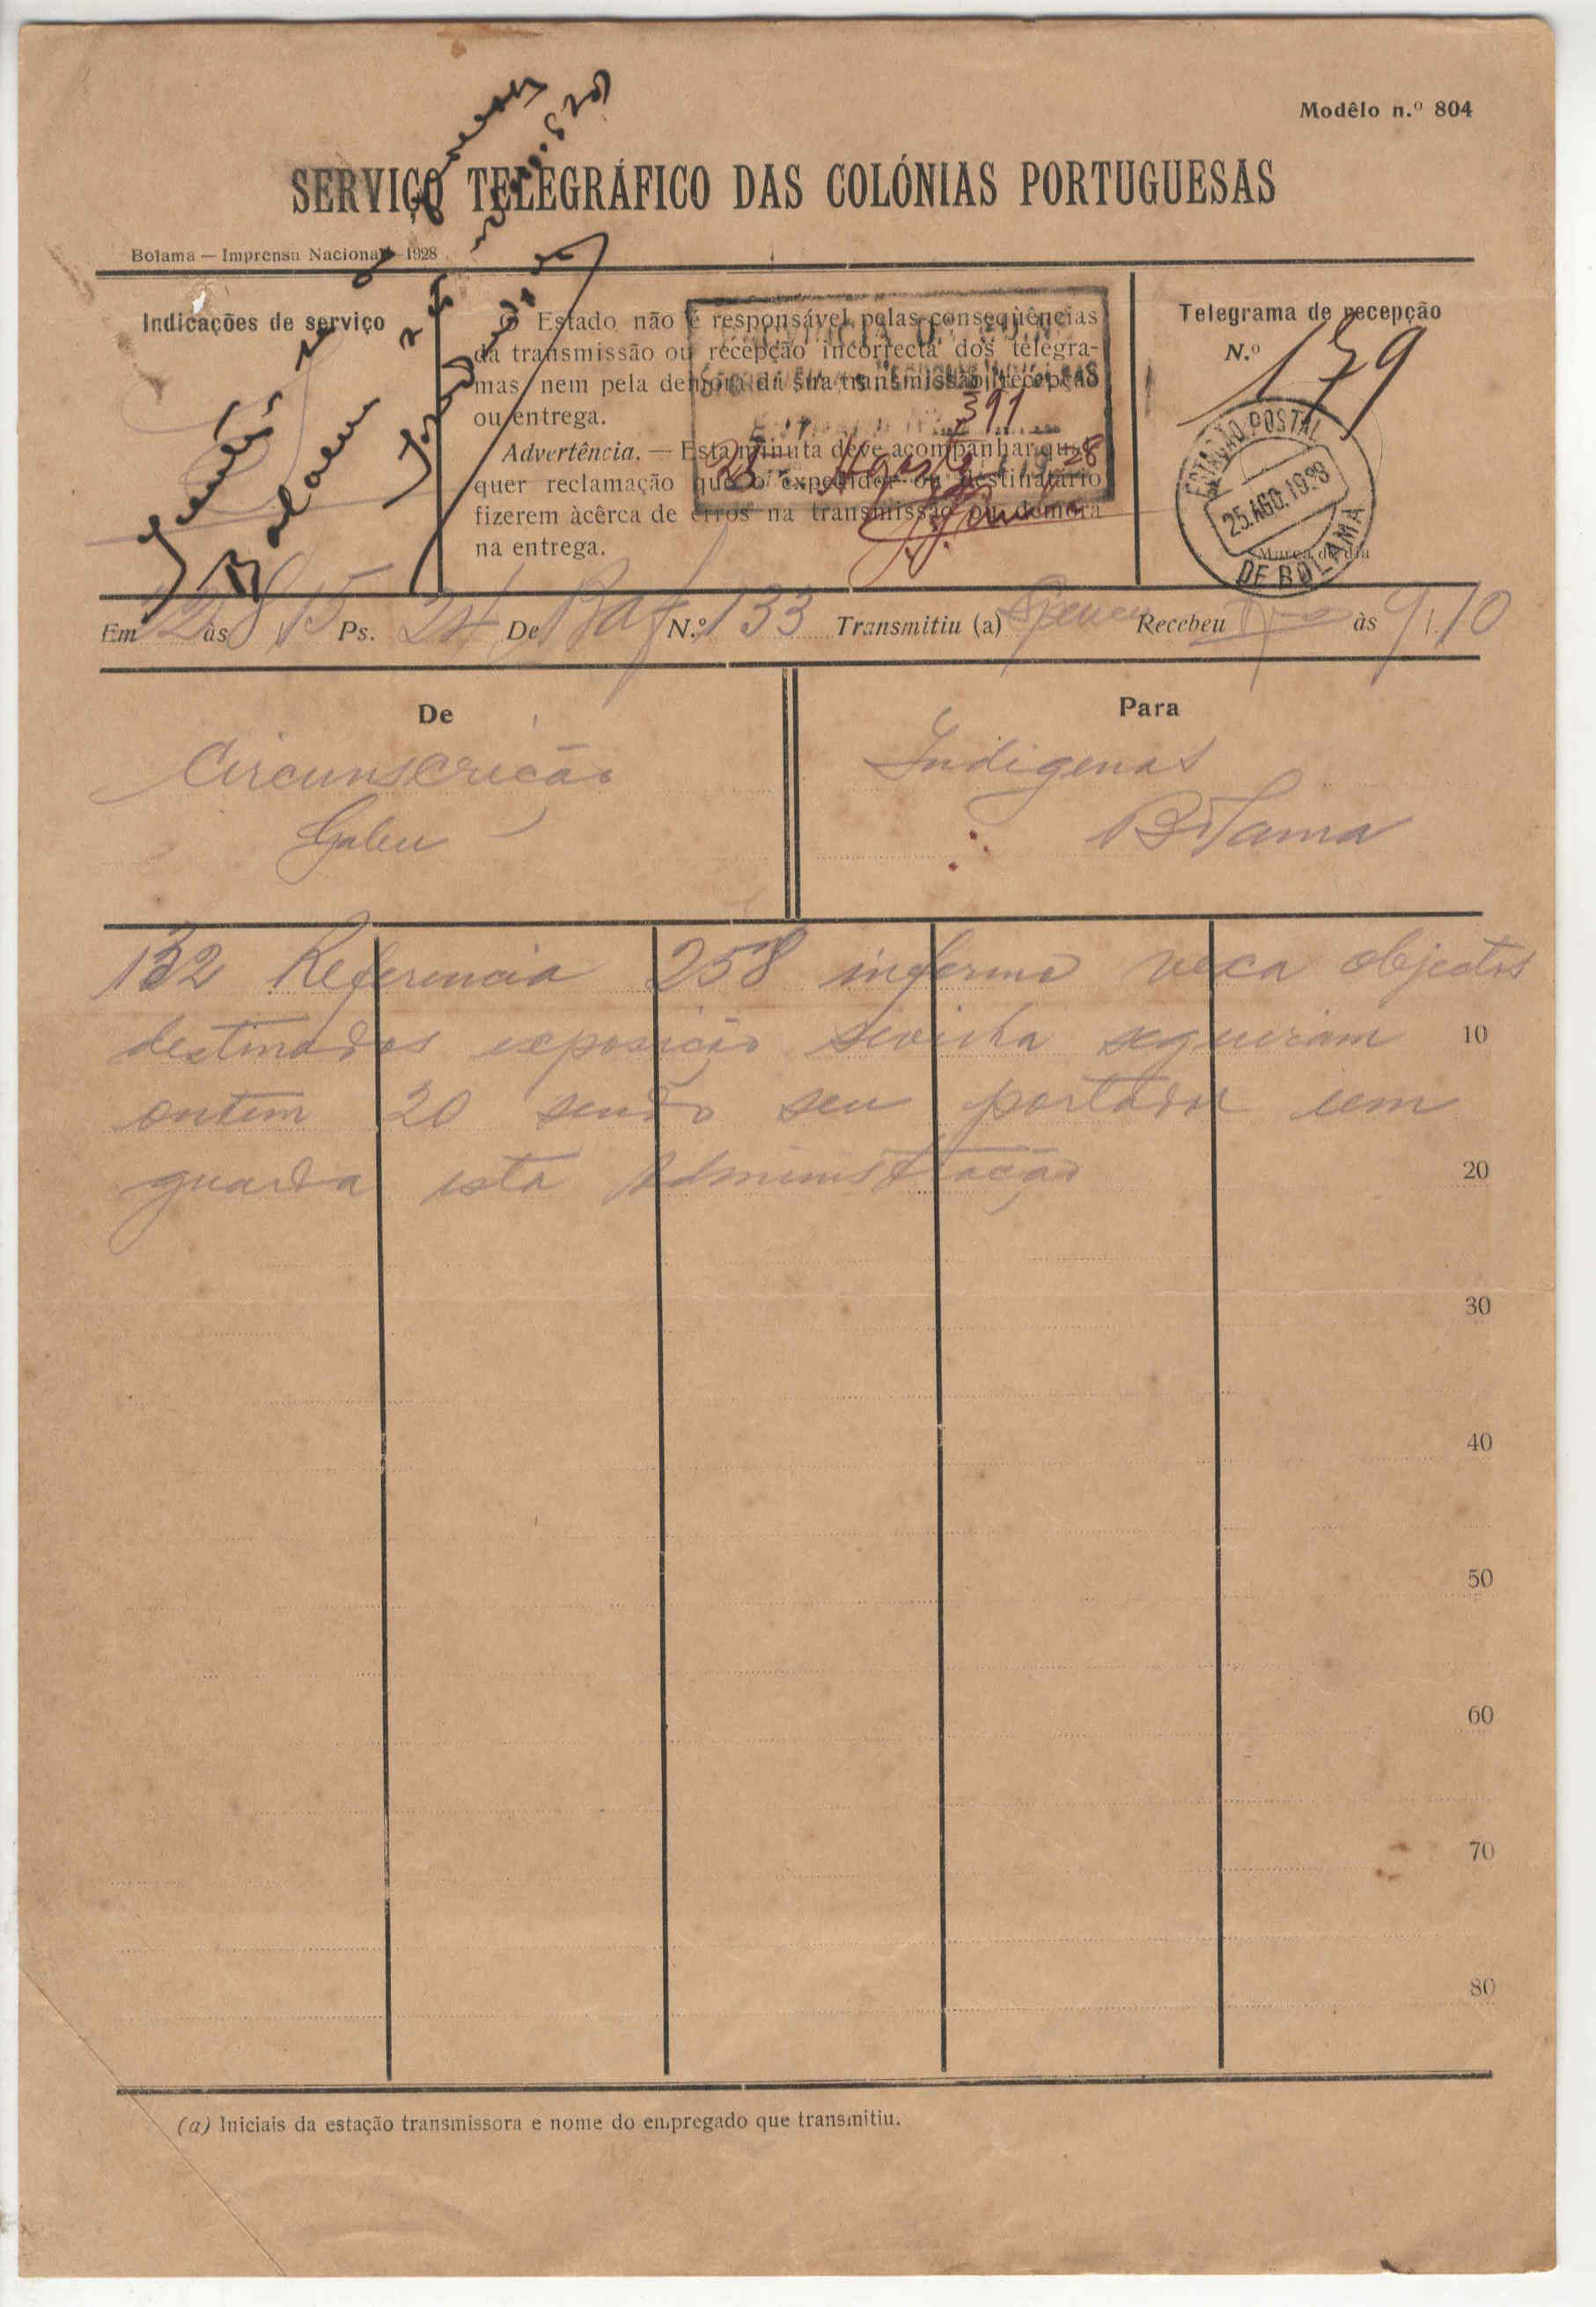 Modêlo n.º 804
SERVIÇO TELEGRÁFICO DAS COLÓNIAS PORTUGUESAS
Bolama — Imprensa Nacional — 1928
Indicações de serviço
O Estado não é responsável pelas conseqüências
da transmissão ou recepção incorrecta dos telegra-
mas, nem pela demora da sua transmissão, recepção
ou entrega.
Advertência. — Esta minuta deve acompanhar qual-
quer reclamação que o expedidor ou destinatário
fizerem àcêrca de erros na transmissão ou demora
na entrega.
391
Agosto 28
Telegrama de recepção
N.º 179
ESTAÇÃO POSTAL
25.AGO.1928
DE BOLAMA
Marca do dia
Em 22 às 8,15 Ps. 24 De Baf N.º 133 Transmitiu (a) Recebeu às 9,10
De
Circunscricão
Gabu
Para
Indigenas
Bolama
132 Referencia 258 informo vexa objectos
destinados exposicão sevilha seguiram 10
ontem 20 sendo seu portador um
guarda esta Administração 20
30
40
50
60
70
80
(a) Iniciais da estação transmissora e nome do empregado que transmitiu.